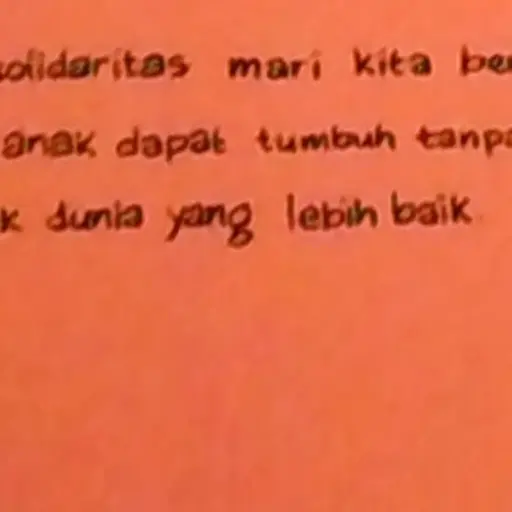 solidaritas mari kita be
anak dapat tumbuh tanpa
k dunia yang lebih baik